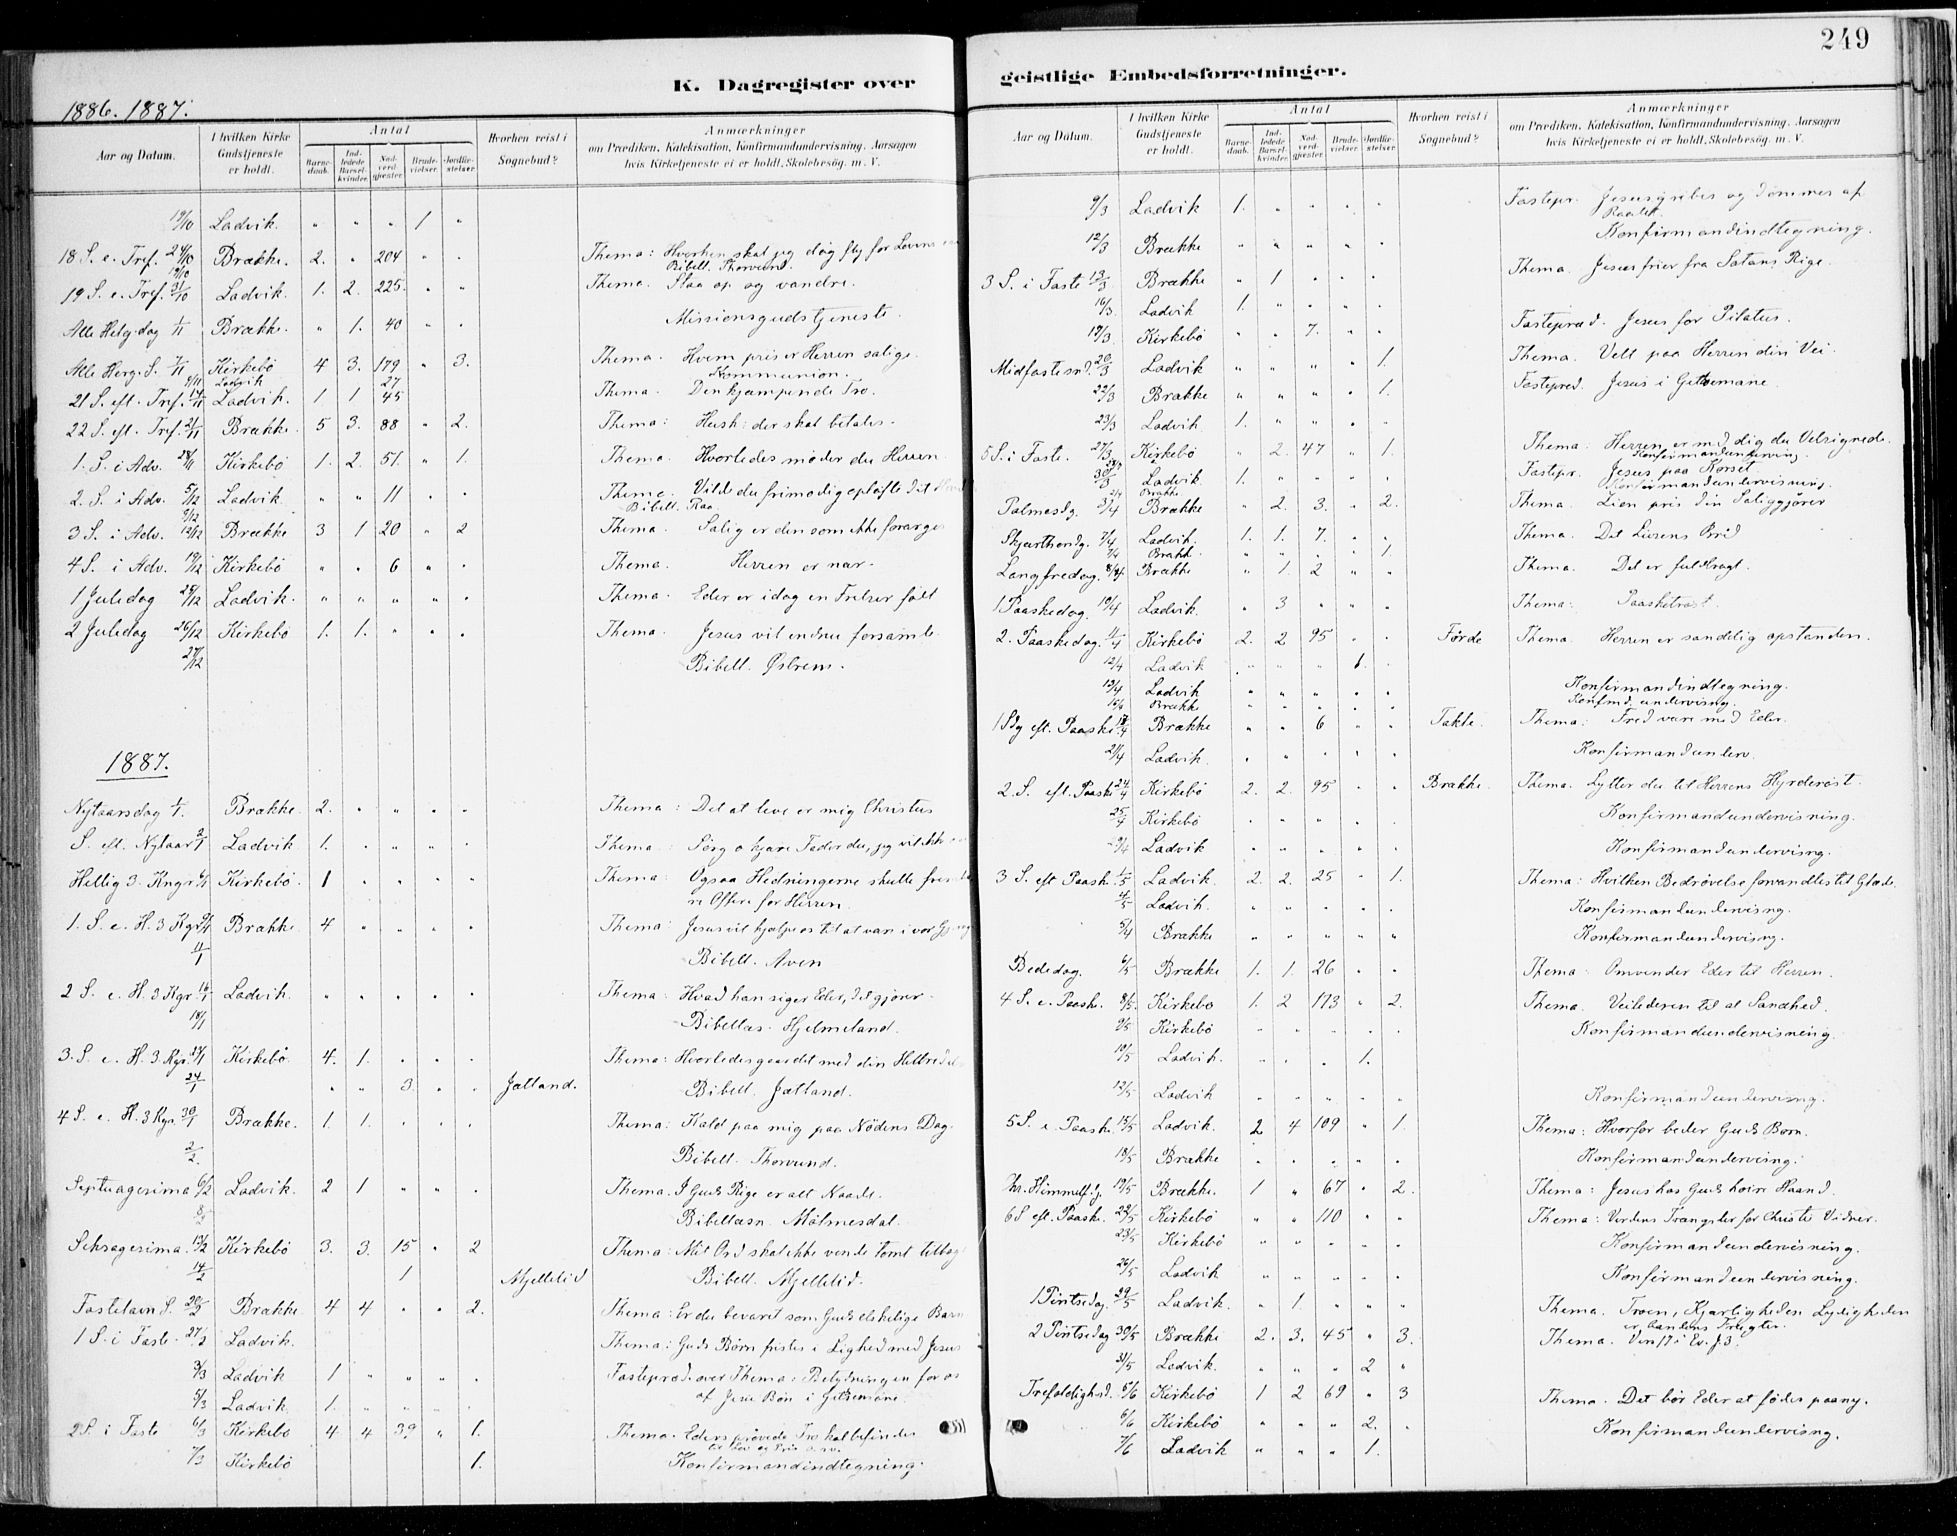 249
K. Dagregister over geistlige Embedsforretninger.
1886. 1887.
Aar og Datum. I hvilken Kirke Gudstjeneste er holdt. Antal Barnedaab. Indledede Barselkvinder. Nadverdgjæster. Brudevielser. Jordfæstelser. Hvorhen reist i Sognebud? Anmærkninger om Prædiken, Katekisation, Konfirmandundervisning, Aarsagen hvis Kirketjeneste ei er holdt, Skolebesøg, m. V.
19/10 Ladvik. " " " 1 "
18 S. e. Tref. 24/10 Brække. 2. " 204 " " Thema: Hvorhen skal jeg dog fly for Lovens
19/10 Bibell. Thorsund.
19 S. e. Tref. 31/10 Ladvik. 1. 2. 225. " " Thema. Staa op og vandre.
Alle Helg. dag 1/11 Brække. " 1. 40 " " Missionsgudstjeneste.
Alle Helg. S. 7/11 Kirkebø 4 3. 179 " 3. Thema. Hvem priser Herren salige.
9/11 Ladvik 27 Kommunion.
21 S. eft. Tref. 14/11 Ladvik. 1 1 45 Thema. Den kjæmpende Tro.
22 S. eft. Tref. 21/11 Brække. 5 3. 88 " 2. Thema: Husk: der skal betales.
1. S. i Adv. 28/11 Kirkebø 1. 2. 51. " 1. Thema. Hvorledes møder du Herren
2. S. i Adv. 5/12 Ladvik " " 11 " " Thema. Vilde du frimodig opløfte dit
9/12 Bibell. Raa.
3 S. i Adv. 12/12 Brække 3 1 20 " 2 Thema. Salig er den som ikke forarges
4 S. i Adv. 19/12 Kirkebø " " 6 " " Thema. Herren er nær.
1 Juledag 25/12 Ladvik. " " " " " Thema. Eder er idag en Frelser født
2 Juledag 26/12 Kirkebø 1. 1. " " " Thema. Jesus vil endnu forsamle
27/12 Bibell. Østrem.
1887.
Nytaarsdag 1/1. Brække. 2. " " " " Thema: Det at leve er mig Christus
S. eft. Nytaar 2/1 Ladvik 1. " " " " Thema: Sørg o kjære Fader du, jeg vil ikke
Hellig 3. Kngr 6/1 Kirkebø. 1 " " " " Thema: Ogsaa Hedningerne skulle
Offere for Herren.
1. S. e. H. 3 Kgr 9/1 Brække. 4 " " " " Thema: Jesus vil hjælpe os til at være i vor
11/1 Bibell. Aven
2 S. e. H. 3 Kgr. 16/1 Ladvik. " " " " " Thema: Hvad han siger Eder, det gjører.
18/1 Bibellæs. Hjelmeland.
3. S. e. H. 3 Kgr. 23/1 Kirkebø. 4. 1. " " " Thema: Hvorledes gaar det med din Helbredelse
24/1 " " 3 " " Jatland. Bibell. Jatland.
4 S. e. H. 3 Kgr. 30/1 Brække. 1. 1. " " " Thema: Kald paa mig paa Nødens Dag.
2/2. Bibell. Thorsund.
Septuagesima 6/2 Ladvik. 2 1 " " " Thema. I Guds Rige er alt Naade.
8/2 Bibellæsn. Molmesdal.
Seksagesima. 13/2 Kirkebø 3. 3. 15 " 2 Thema: Mit Ord skal ikke vende tomt tilbage
14/2 1 Mjelletid Bibell. Mjelletid.
Fastelavn S. 20/2 Brække 4 4 " " 2. Thema: Er du bevaret som Guds elskelige Barn
1 S. i Faste 27/2 Ladvik. Thema: Guds Børn fristes i Lighed med Jesus
3/3 Ladvik 1 " " " " Fastepræd. over Thema: Betydningen for os
5/3 Ladvik 1. " " " af Jesu Bøn i Getsemane.
2 S. i Faste 6/3 Kirkebø 4 4 39 " 1. Thema. Eders prøvede Tro skal befindes
til Lov og Pris o.s.v.
7/3 Kirkebø 1. Konfirmandindtegning.
Aar og Datum. I hvilken Kirke Gudstjeneste er holdt. Antal Barnedaab. Indledede Barselkvinder. Nadverdgjæster. Brudevielser. Jordfæstelser. Hvorhen reist i Sognebud? Anmærkninger om Prædiken, Katekisation, Konfirmandundervisning, Aarsagen hvis Kirketjeneste ei er holdt, Skolebesøg, m. V.
9/3 Ladvik 1. " " " " Fastepr. Jesus gribes og dømmes af
Raadet.
12/3 Brække " " " " " Konfirmandindtegning.
3 S. i Faste 13/3 Brække " 1 " " " Thema. Jesus frier fra Satans Rige.
16/3 Ladvik 1. " " " "
17/3 Kirkebø " " 7. " " Fastepræd. Jesus for Pilatus.
Midfastesnd. 20/3 Ladvik " " " " 1. Thema. Velt paa Herren din Vei.
22/3 Brække " " " " 1. Fastepred. Jesus i Getsemane.
23/3 Ladvik 1. " " " "
5 S. i Faste. 27/3 Kirkebø " 2. 47 " 1. Thema: Herren er med dig du Velsignede.
Konfirmandunderving.
30/3 Ladvik 1. " " " " Fastepr. Jesus paa Korset
2/4 Brække Konfirmandundervisning.
Palmesdg. 3/4 Brække " 2. 3. " 2. Thema. Zion pris din Saliggjører
Skjærthorsdg. 7/4 Ladvik. 1. 1. 7. " " Thema. Det Livsens Brød
7/4 Brækk. " " " " 1.
Langfredag. 8/4 Brække " 1. 2 " " Thema. Det er fuldbragt.
1 Paaskedag. 10/4 Ladvik. " 3 " " " Thema: Paasketrøst
2. Paaskedag. 11/4 Kirkebø 2. 2 95 " " Førde Thema. Herren er sandelig opstanden.
12/4 Ladvik " " " 1. "
13/4 Ladvik " " " " " Konfirmandindtegning.
15/4 Brække " " " " " Konfmd. undervisng.
1 Sdg eft. Paaske 17/4 Brække " " 6 " " Takle. Thema: Fred være med Eder.
21/4 Ladvik. " " " " " Konfirmandunderv.
2. S. eft. Paaske 24/4 Kirkebø 2. 2. 95 " " Brække. Thema. Lytter du til Herrens Hyrderøst.
25/4 Kirkebø " " " " " Konfirmandundervisning.
/4 Ladvik " " " " " Konfirmandundervisng.
3 S. eft Paask. 1/5 Ladvik. 2. 2. 25 " 1. Thema: Hvilken Bedrøvelse forvandles til Glæde
4/5 Ladvik. " " " " " Konfirmandundervisng.
5/4 Brække " " " " " Konfirmandundervisng.
Bededag. 6/5 Brække 1. 1. 26 " " Thema: Omvender Eder til Herren.
4 S. e. Paask. 8/5. Kirkebø 1. 2 173 " 2. Thema. Veilederen til al Sandhed.
9/5 Kirkebø " " " " " Konfirmandundervisning.
10/5 Ladvik. " " " 1.
12/5 Ladvik " " " " " Konfirmandundervisng.
5 S. e. Paask. 15/5 Ladvik. 2 4 109 " 1. Thema: Hvorfor beder Guds Børn.
18/5 Brække " " " " " Konfirmandundervisng.
Kr. Himmelf.g. 19/5 Brække. 1 " 67 " 2. Thema: Jesus hos Guds høire Haand.
6 S eft. Paask. 22/5 Kirkebø " " 110 " " Thema: Verdens Trængsler for Christi Vidner.
23/5 Kirkebø " " " " " Konfirmandundervisning.
26/5 Ladvik " " " " " Konfirmandundervisning.
1 Pintsedag. 29/5 Ladvik. " 1. " " " Thema. Troen, Kjærligheden Lydigheden
er Aandens Frugter.
2 Pintsedag 30/5 Brække 2. 3. 45 " 3. Thema. Vers 17 i Ev. J 3.
31/5 Ladvik " " " 2 "
Trefoldighed. 5/6 Kirkebø 1 2 69 " 3 Thema. Det bør Eder at fødes paany.
6/6 Kirkebø " " " 2. " Konfirmandundervisng.
7/6 Ladvik " " " 1.